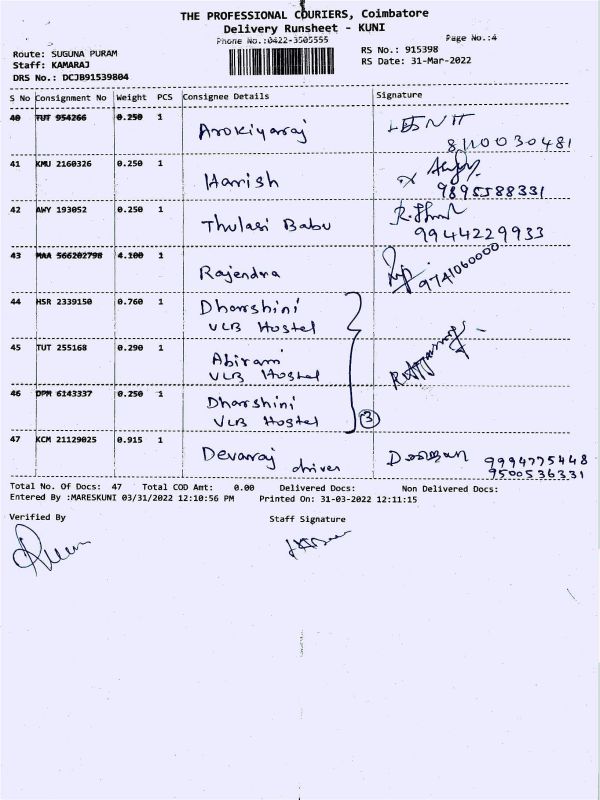 THE PROFESSIONAL COURIERS, Coimbatore
Delivery Runsheet - KUNI
Phone No.:0422-3505555
Page No.:4
Route: SUGUNA PURAM
RS No.: 915398
Staff: KAMARAJ
RS Date: 31-Mar-2022
DRS No.: DCJB91539804
S No Consignment No Weight PCS Consignee Details Signature
40 TUT 954266 0.250 1 Arokiyaraj
8110030481
41 KMU 2160326 0.250 1 Harrish
9895588331
42 AWY 193052 0.250 1 Thulasi Babu
9944229933
43 MAA 566202798 4.100 1 Rajendra 9741060000
44 HSR 2339150 0.760 1 Dharshini
VLB Hostel
45 TUT 255168 0.290 1 Abirami
VLB Hostel
46 DPM 6143337 0.250 1 Dharshini
VLB Hostel 3
47 KCM 21129025 0.915 1 Devarraj driver 9994775448
9500536331
Total No. Of Docs: 47 Total COD Amt: 0.00 Delivered Docs: Non Delivered Docs:
Entered By :MARESKUNI 03/31/2022 12:10:56 PM Printed On: 31-03-2022 12:11:15
Verified By Staff Signature